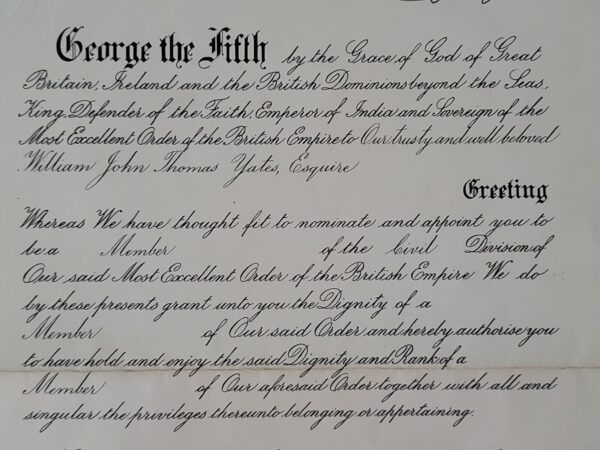 George the Fifth by the Grace of God of Great
Britain, Ireland and the British Dominions beyond the Seas,
King, Defender of the Faith, Emperor of India and Sovereign of the
Most Excellent Order of the British Empire to Our trusty and well beloved
William John Thomas Yates, Esquire
Greeting
Whereas We have thought fit to nominate and appoint you to
be a Member of the Civil Division of
Our said Most Excellent Order of the British Empire We do
by these presents grant unto you the Dignity of a
Member of Our said Order and hereby authorise you
to have hold and enjoy the said Dignity and Rank of a
Member of Our aforesaid Order together with all and
singular the privileges thereunto belonging or appertaining.